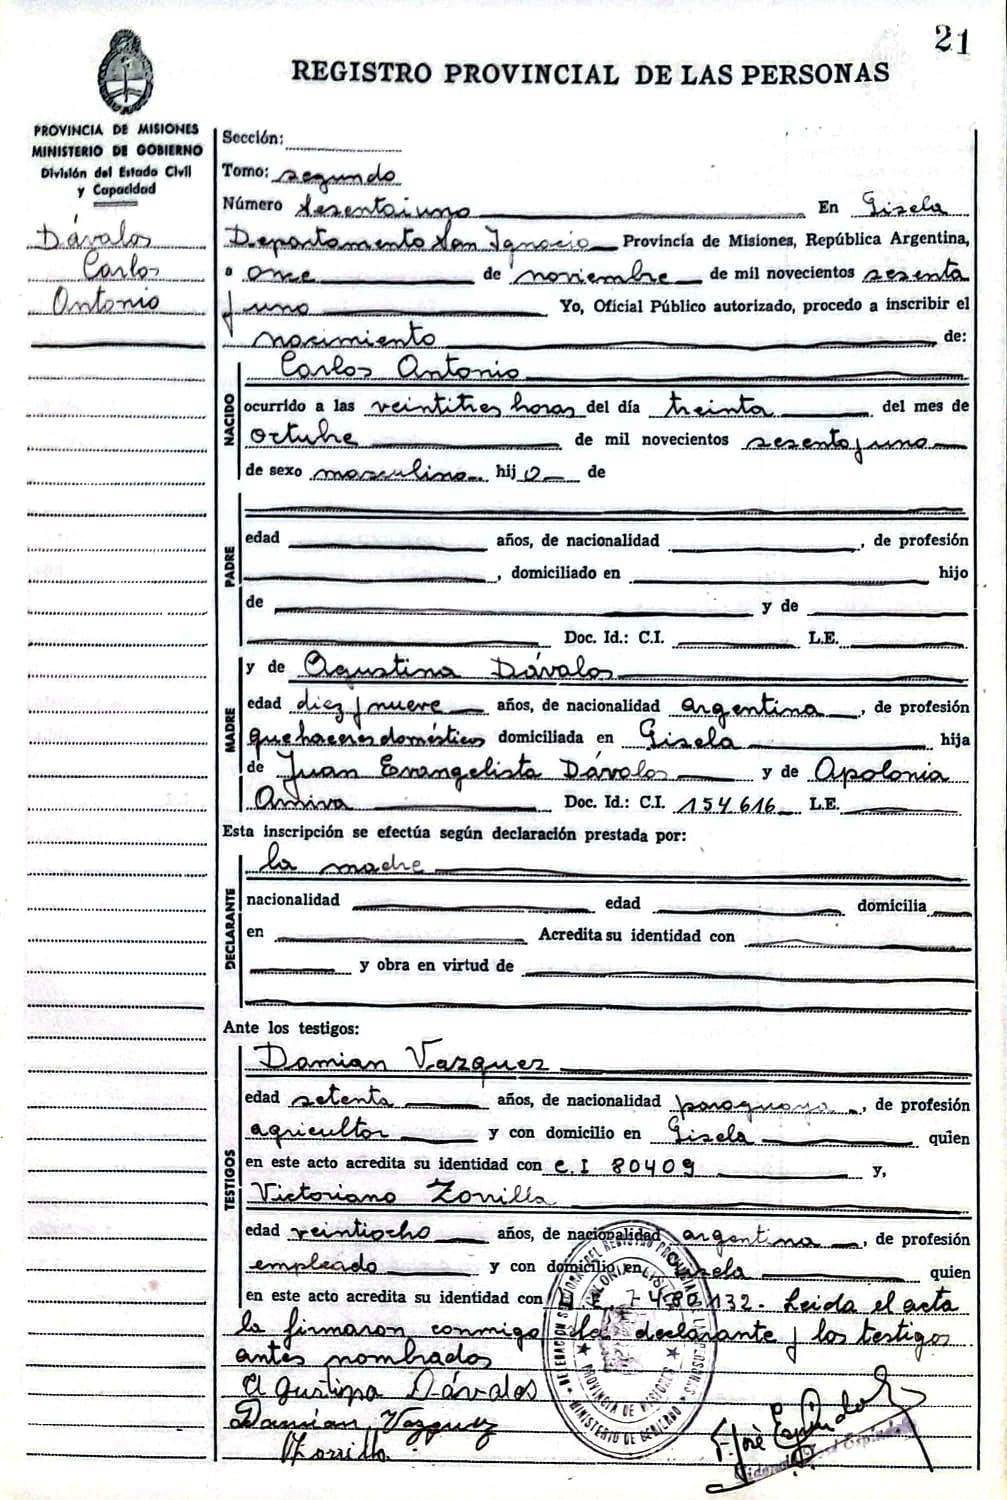 21
REGISTRO PROVINCIAL DE LAS PERSONAS
PROVINCIA DE MISIONES
MINISTERIO DE GOBIERNO
División del Estado Civil
y Capacidad
Dávalos
Carlos
Antonio
Sección:
Tomo: segundo
Número sesentaiuno En Gisela
Departamento San Ignacio Provincia de Misiones, República Argentina,
a once de noviembre de mil novecientos sesenta
y uno Yo, Oficial Público autorizado, procedo a inscribir el
nacimiento de:
Carlos Antonio
NACIDO
ocurrido a las veintitres horas del día treinta del mes de
octubre de mil novecientos sesenta y uno
de sexo masculino hijo de
PADRE
edad años, de nacionalidad , de profesión
, domiciliado en hijo
de y de
Doc. Id.: C.I. L.E.
MADRE
y de Agustina Dávalos
edad diez y nueve años, de nacionalidad argentina , de profesión
quehaceres domésticos domiciliada en Gisela hija
de Juan Evangelista Dávalos y de Apolonia
Doc. Id.: C.I. 154.616 L.E.
Esta inscripción se efectúa según declaración prestada por:
la madre
DECLARANTE
nacionalidad edad domicilia
en Acredita su identidad con
y obra en virtud de
Ante los testigos:
Damian Vazquez
TESTIGOS
edad setenta años, de nacionalidad paraguaya , de profesión
agricultor y con domicilio en Gisela quien
en este acto acredita su identidad con C.I 80409 y,
Victoriano Zorrilla
edad veintiocho años, de nacionalidad argentina , de profesión
empleado y con domicilio en Gisela quien
en este acto acredita su identidad con 7.480.132. Leida el acta
la firmaron conmigo la declarante y los testigos
antes nombrados
Agustina Dávalos
Damian Vazquez
Zorrilla
PROVINCIA DE MISIONES
MINISTERIO DE GOBIERNO